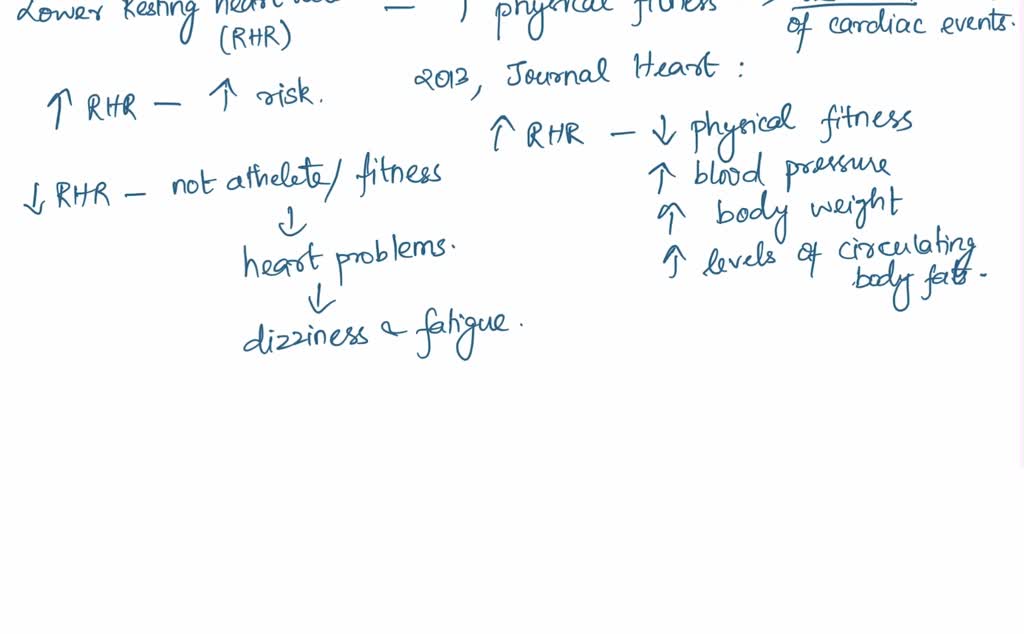 Lower Resting heart — ↑ physical fitness
(RHR)
of cardiac events.
↑ RHR — ↑ risk.
2013, Journal Heart :
↑ RHR — ↓ physical fitness
↑ blood pressure
↑ body weight
↑ levels of circulating
body fats.
↓ RHR — not athelete/ fitness
↓
heart problems.
↓
dizziness & fatigue.